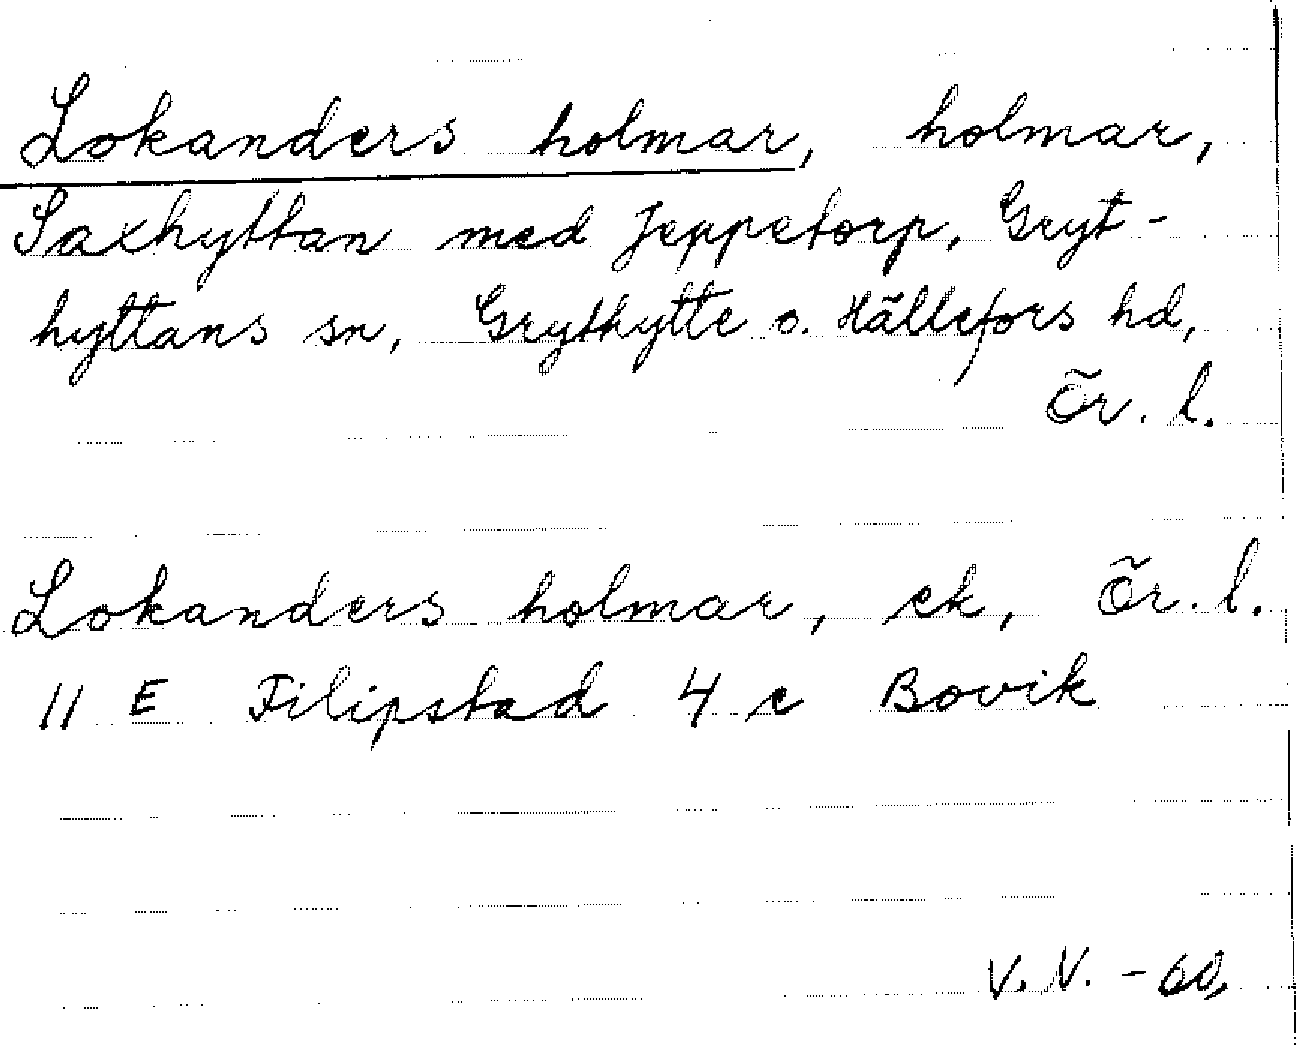 Lokanders holmar, holmar,
Saxhyttan med Jeppetorp, Gryt-
hyttans sn, Grythytte o. Hällefors hd,
Ör. l.
Lokanders holmar, ek, Ör. l.
11 E Filipstad 4 c Bovik
V. V. - 60,